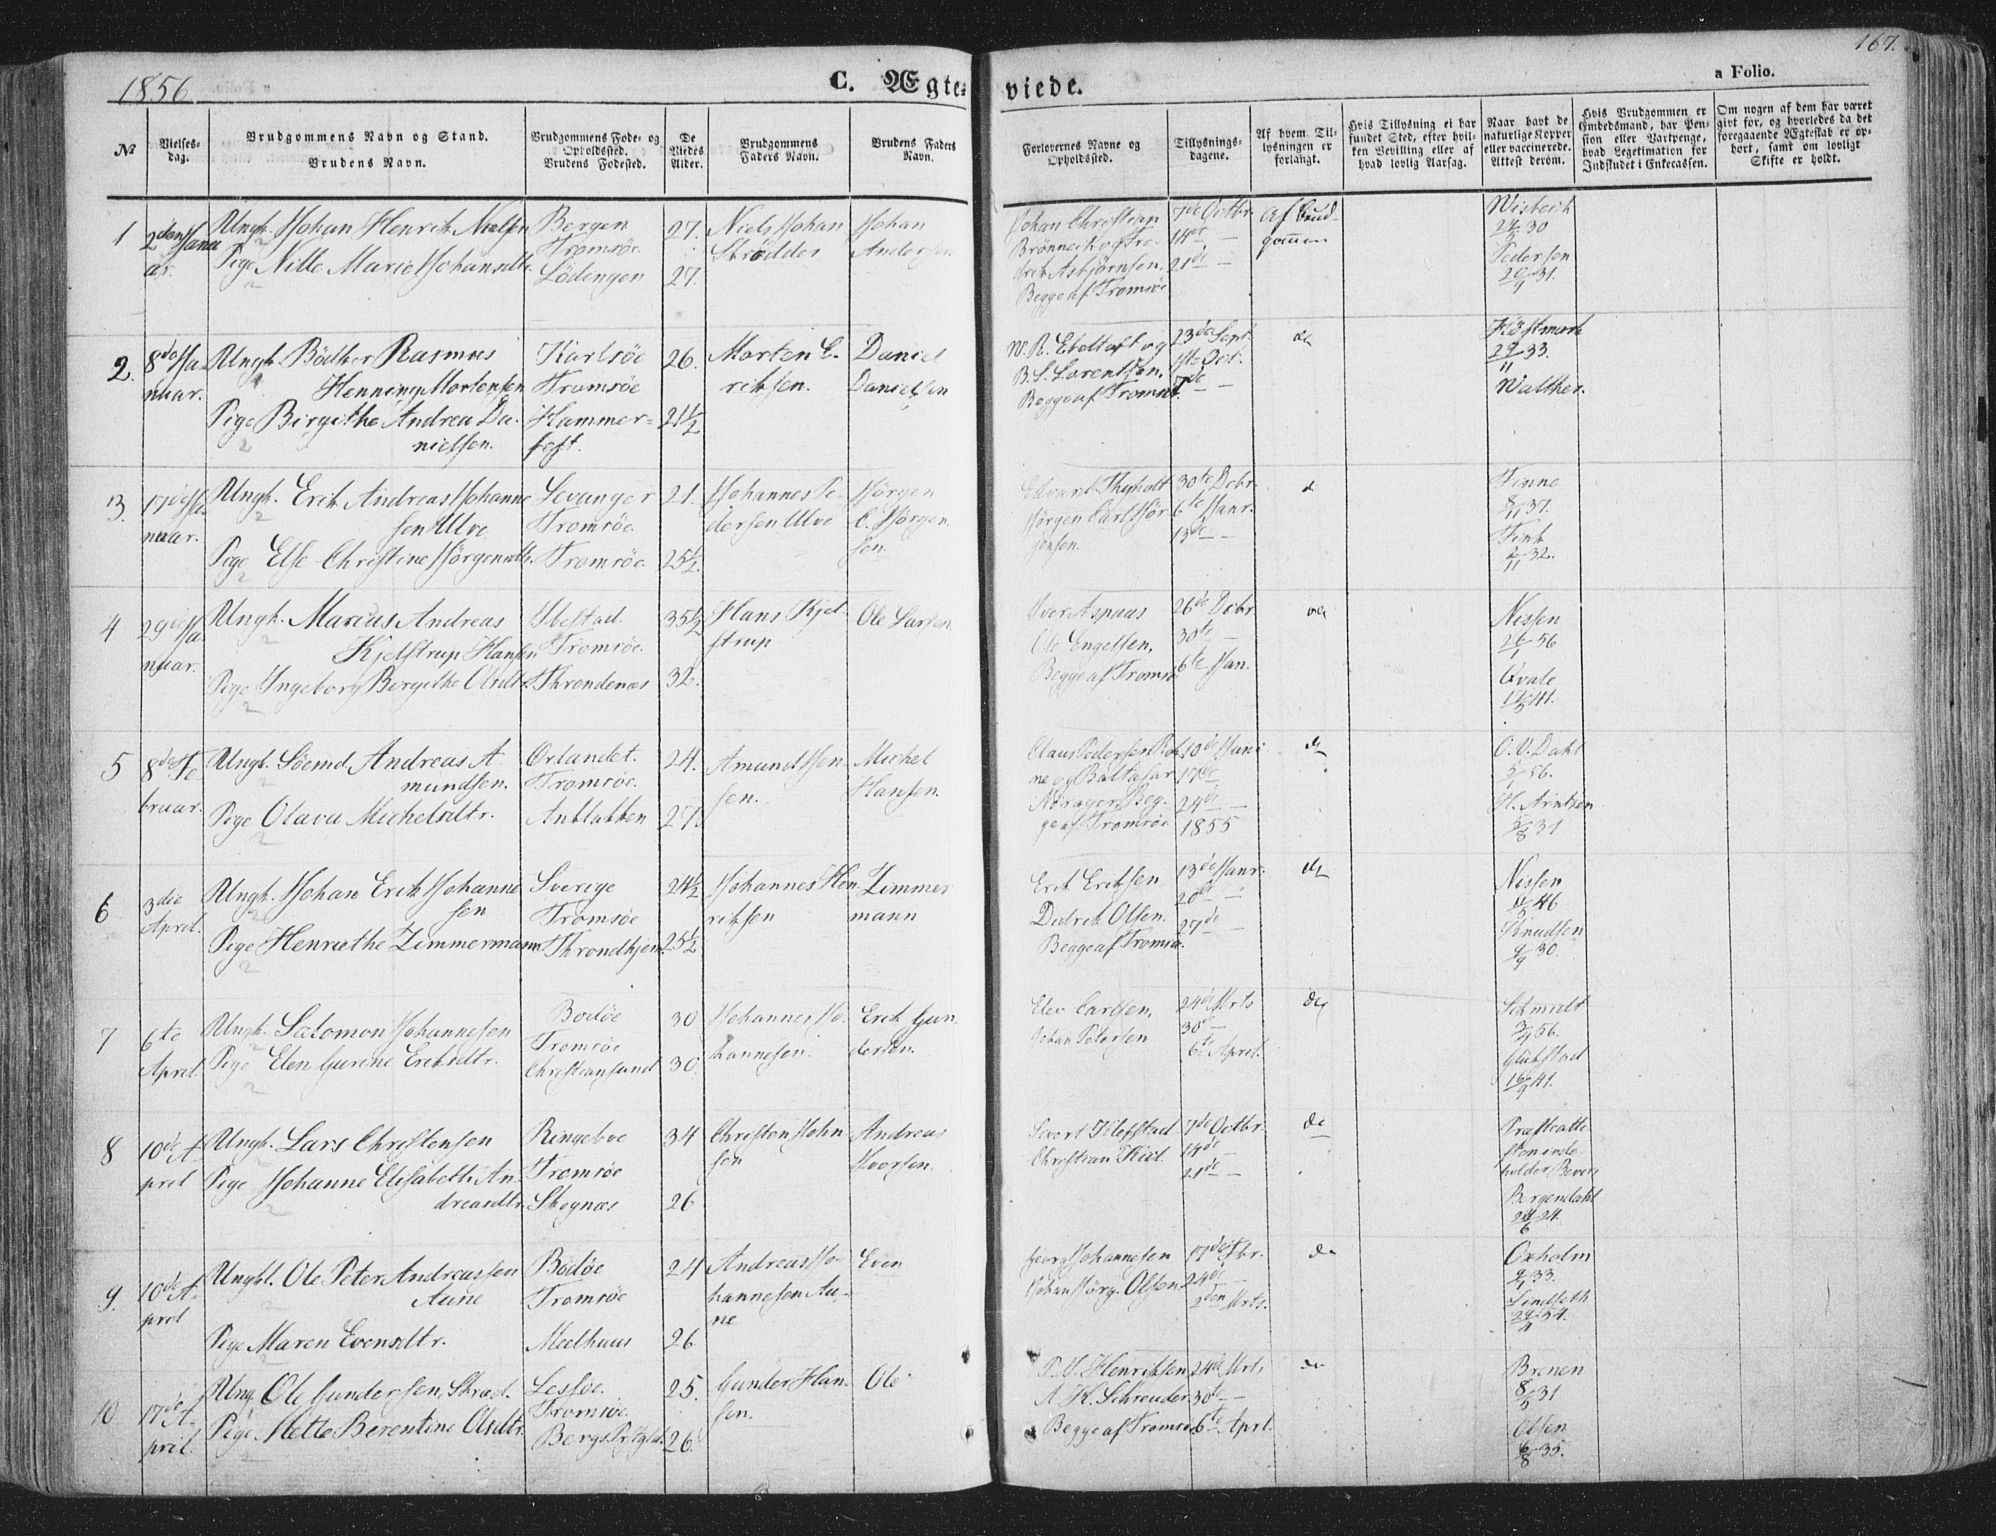 1856
C. Ægte-
viede.
167.
a Folio.
No
Vielses-
dag.
Brudgommens Navn og Stand.
Brudens Navn.
Brudgommens Føde- og
Opholdssted.
Brudens Fødested.
De
Viedes
Alder.
Brudgommens
Faders Navn.
Brudens Faders
Navn.
Forlovernes Navne og
Opholdssted.
Tillysnings-
dagene.
Af hvem Til-
lysningen er
forlangt.
Hvis Tillysning ei har
fundet Sted, efter hvil-
ken Bevilling eller af
hvad lovlig Aarsag.
Naar havt de
naturlige Kopper
eller vaccinerede.
Attest derom.
Hvis Brudgommen er
Embedsmand, har Pen-
sion eller Vartpenge,
hvad Legetimation for
Indskudet i Enkecassen.
Om nogen af dem har været
givt før, og hvorledes da det
foregaaende Ægteskab er op-
hørt, samt om lovligt
Skifte er holdt.
1
2den Janu
ar.
Ungk. Johan Henrik Nielsen
Pige Nille Marie Johansdtr.
Bergen
Tromsøe
Lödingen
27.
27.
Niels Johan
Strödder
Johan
Andersen
Johan Christian
Brönneck og Fre-
drik Asbjörnsen,
Begge af Tromsöe
7de Octbr.
14de —
21de —
Af Brud-
gommen
Wisbech
24/5 30
Pedersen
20/9 31.
2.
8de Ja
nuar.
Ungk. Bödker Rasmus
Henning Mortensen
Pige Birgithe Andrea Da-
nielsen.
Karlsöe
Tromsøe
Hammer-
fest.
26.
21½
Morten E-
riksen.
Daniel
Danielsen
W. R. Ebeltoft og
B. S. Lorentsen,
Begge af Tromsöe.
23de Sept.
1ste Oct.
7de —
do
29/11 33.
Walther.
3.
17de Ja
nuar.
Ungk. Erik Andreas Johanne
sen Ulve
Pige Else Christine Jörgensdtr.
Levanger
Tromsöe.
Tromsöe.
21.
25½.
Johannes Pe-
dersen Ulve
Jörgen
C. Jörgen
sen.
Edvard Thyholt
Jörgen Carl Jör-
gensen.
30te Debr.
6te Janr.
13de —
d
Finne
8/11 37.
Fink
2/11 32.
4
29de Ja
nuar.
Ungk. Marcus Andreas
Kjelstrup Hansen
Pige Ingeborg Bergithe Olsdtr.
Ibestad.
Tromsöe.
Throndenæs
35½
32.
Hans Kjel-
strup
Ole Larsen
Iver Aspaas
Ole Engelsen,
Begge af Tromsöe
26de Debr
30te —
6te Jan.
do
Nissen
26/1 56
Qvale
17/5 41.
5
8de Fe
bruar.
Ungk. Söemd. Andreas A
mundsen.
Pige Olava Michelsdtr.
Orlandet.
Tromsöe.
Anblakken
24.
27.
Amundsen
sen.
Michel
Hansen.
Claus Pedersen
ne og Baltasar
Norager, Beg-
ge af Tromsöe
10de Juni
17de
24de —
1855
do
O. V. Dahl
5/1 56.
H. Arntzen
5/8 31
6
3die
April.
Ungk. Johan Erik Johanne
sen
Pige Henriethe Zimmermann
Sverige
Tromsöe
Throndhjem
24½
25½
Johannes Hen
riksen
Zimmer
mann
Erik Eriksen
Didrik Olsen.
Begge af Tromsöe.
13de Janr.
20de —
27de —
do
Nissen
4/5 46
Knudsen
9/9 30.
7
6te
April
Ungk. Salomon Johannesen
Pige Elen Gurine Eriksdtr.
Bodöe
Tromsöe
Christiansund
30
30.
Johannes Jo-
hannesen.
Erik Gun
dersen.
Elev Carlsen,
Johan Petersen
24de Mrts
30te —
6te April.
do
Schmidt
3/4 56.
Gladstad
16/9 41.
8
10de A-
pril
Ungk. Lars Christensen
Pige Johanne Elisabeth An-
dreasdtr.
Ringeboe
Tromsöe
Skognæs
34
26
Christen John
sen
Andreas
Iversen.
Sivert Klefstad
Christian Kiil.
7de Octbr.
14de
21de —
do
Præsteatte
sten inde
holder Bevis
Bergendahl
24/6 24.
9.
10de A-
pril
Ungkl. Ole Peter Andreassen
Aune
Pige Maren Evensdtr.
Bodöe
Tromsöe
Meelhuus
24
26
Andreas Jo-
hannesen Au-
ne
Even
Georg Johannesen
Johan Jörg. Olsen
17de Fbr.
24de —
2den Mrts.
do
Oxholm
9/1 33.
Lindseth
29/4 34.
10
17de A-
pril.
Ungk. Ole Gundersen, Skræd.
Pige. Mette Berentine Olsdtr.
Lesöe.
Tromsöe.
Bergs Prstgld.
25.
26.
Gunder Han-
sen.
Ole
P. J. Henriksen
A. K. Schreuder
Begge af Tromsöe
24de Mrts
30te —
6te Aprl.
do
Brenen
8/5 31
Olsen
6/8 35.